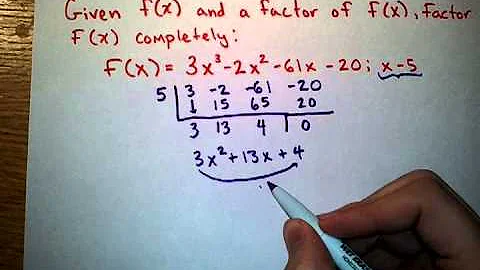 Given f(x) and a factor of f(x), factor
f(x) completely:
f(x) = 3x³-2x²-61x-20; x-5
5 | 3 -2 -61 -20
↓ 15 65 20
3 13 4 | 0
3x²+13x+4